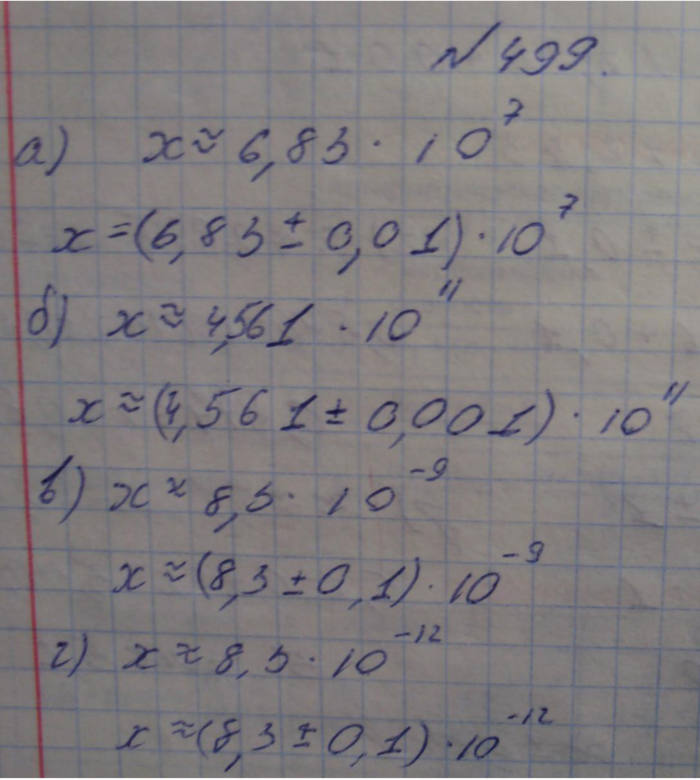 № 499.
а) x ≈ 6,83 · 10⁷
x = (6,83 ± 0,01) · 10⁷
б) x ≈ 4,561 · 10¹¹
x ≈ (4,561 ± 0,001) · 10¹¹
в) x ≈ 8,3 · 10⁻⁹
x ≈ (8,3 ± 0,1) · 10⁻⁹
г) x ≈ 8,3 · 10⁻¹²
x ≈ (8,3 ± 0,1) · 10⁻¹²